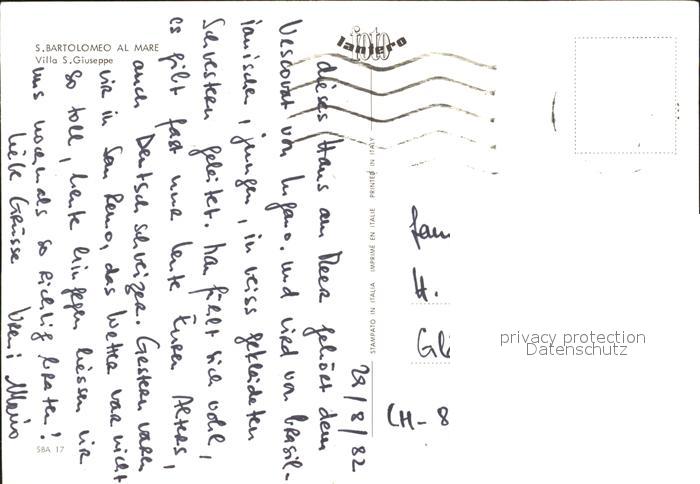 S.BARTOLOMEO AL MARE
Villa S.Giuseppe
foto
lantero
29/8/82
dieses Haus am Meer gehört dem
Vescovat von Lugano. und wird von brasil-
ianischen, jungen, in weiss gekleideten
Schwestern geleitet. Man fühlt sich wohl,
es gibt fast nur Leute Euren Alters,
auch Deutschschweizer. Gestern waren
wir in San Remo, das Wetter war nicht
so toll, heute hingegen liessen wir
uns nochmals so richtig braten!
liebe Grüsse Vreni
STAMPATO IN ITALIA IMPRIMÉ EN ITALIE PRINTED IN ITALY
Fam
H.
Gl
CH-8
privacy protection
Datenschutz
SBA 17